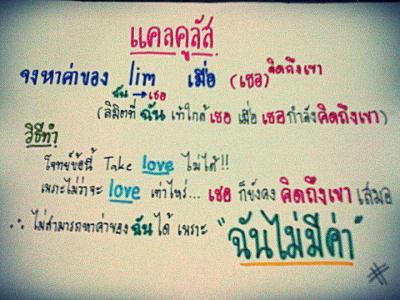 แคลคูลัส
จงหาค่าของ lim เมื่อ (เธอ)คิดถึงเขา
ฉัน → เธอ
(ลิมิตที่ ฉัน เข้าใกล้ เธอ เมื่อ เธอกำลังคิดถึงเขา)
วิธีทำ
โจทย์ข้อนี้ Take love ไม่ได้!!
เพราะไม่ว่าจะ love เท่าไหร่... เธอ ก็ยังคง คิดถึงเขา เสมอ
∴ ไม่สามารถหาค่าของ ฉัน ได้ เพราะ "ฉันไม่มีค่า"
#